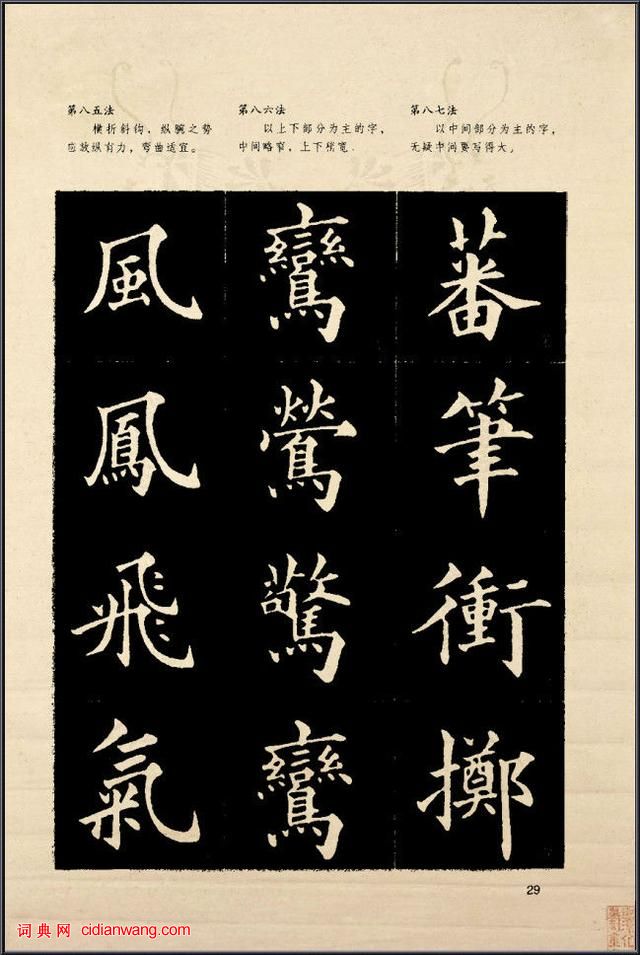 第八五法
横折斜钩，纵腕之势
应放纵有力，弯曲适宜。
第八六法
以上下部分为主的字，
中间略窄，上下稍宽.
第八七法
以中间部分为主的字，
无疑中间要写得大。
風鳳飛氣
鸞鶯驚鸞
蕃筆衝擲
29
词典网 cidianwang.com